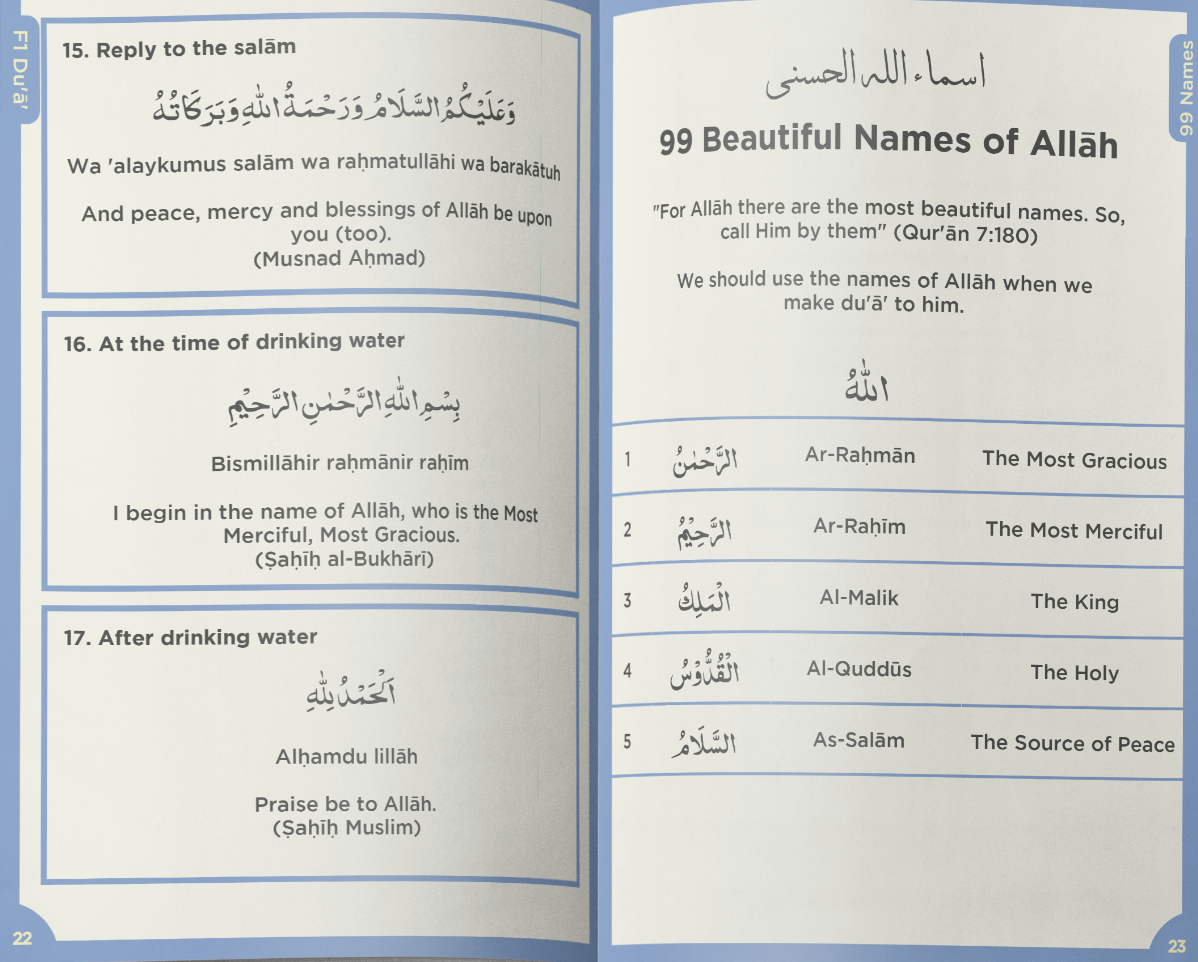 F1 Du'ā'
15. Reply to the salām
وَعَلَيْكُمُ السَّلَامُ وَرَحْمَةُ اللّٰهِ وَبَرَكَاتُهُ
Wa 'alaykumus salām wa raḥmatullāhi wa barakātuh
And peace, mercy and blessings of Allāh be upon
you (too).
(Musnad Aḥmad)
16. At the time of drinking water
بِسْمِ اللّٰهِ الرَّحْمٰنِ الرَّحِيْمِ
Bismillāhir raḥmānir raḥīm
I begin in the name of Allāh, who is the Most
Merciful, Most Gracious.
(Ṣaḥīḥ al-Bukhārī)
17. After drinking water
اَلْحَمْدُ لِلّٰهِ
Alḥamdu lillāh
Praise be to Allāh.
(Ṣaḥīḥ Muslim)
22
99 Names
اسماء الله الحسنى
99 Beautiful Names of Allāh
"For Allāh there are the most beautiful names. So,
call Him by them" (Qur'ān 7:180)
We should use the names of Allāh when we
make du'ā' to him.
اللّٰهُ
1 الرَّحْمٰنُ Ar-Raḥmān The Most Gracious
2 الرَّحِيْمُ Ar-Raḥīm The Most Merciful
3 الْمَلِكُ Al-Malik The King
4 الْقُدُّوْسُ Al-Quddūs The Holy
5 السَّلَامُ As-Salām The Source of Peace
23